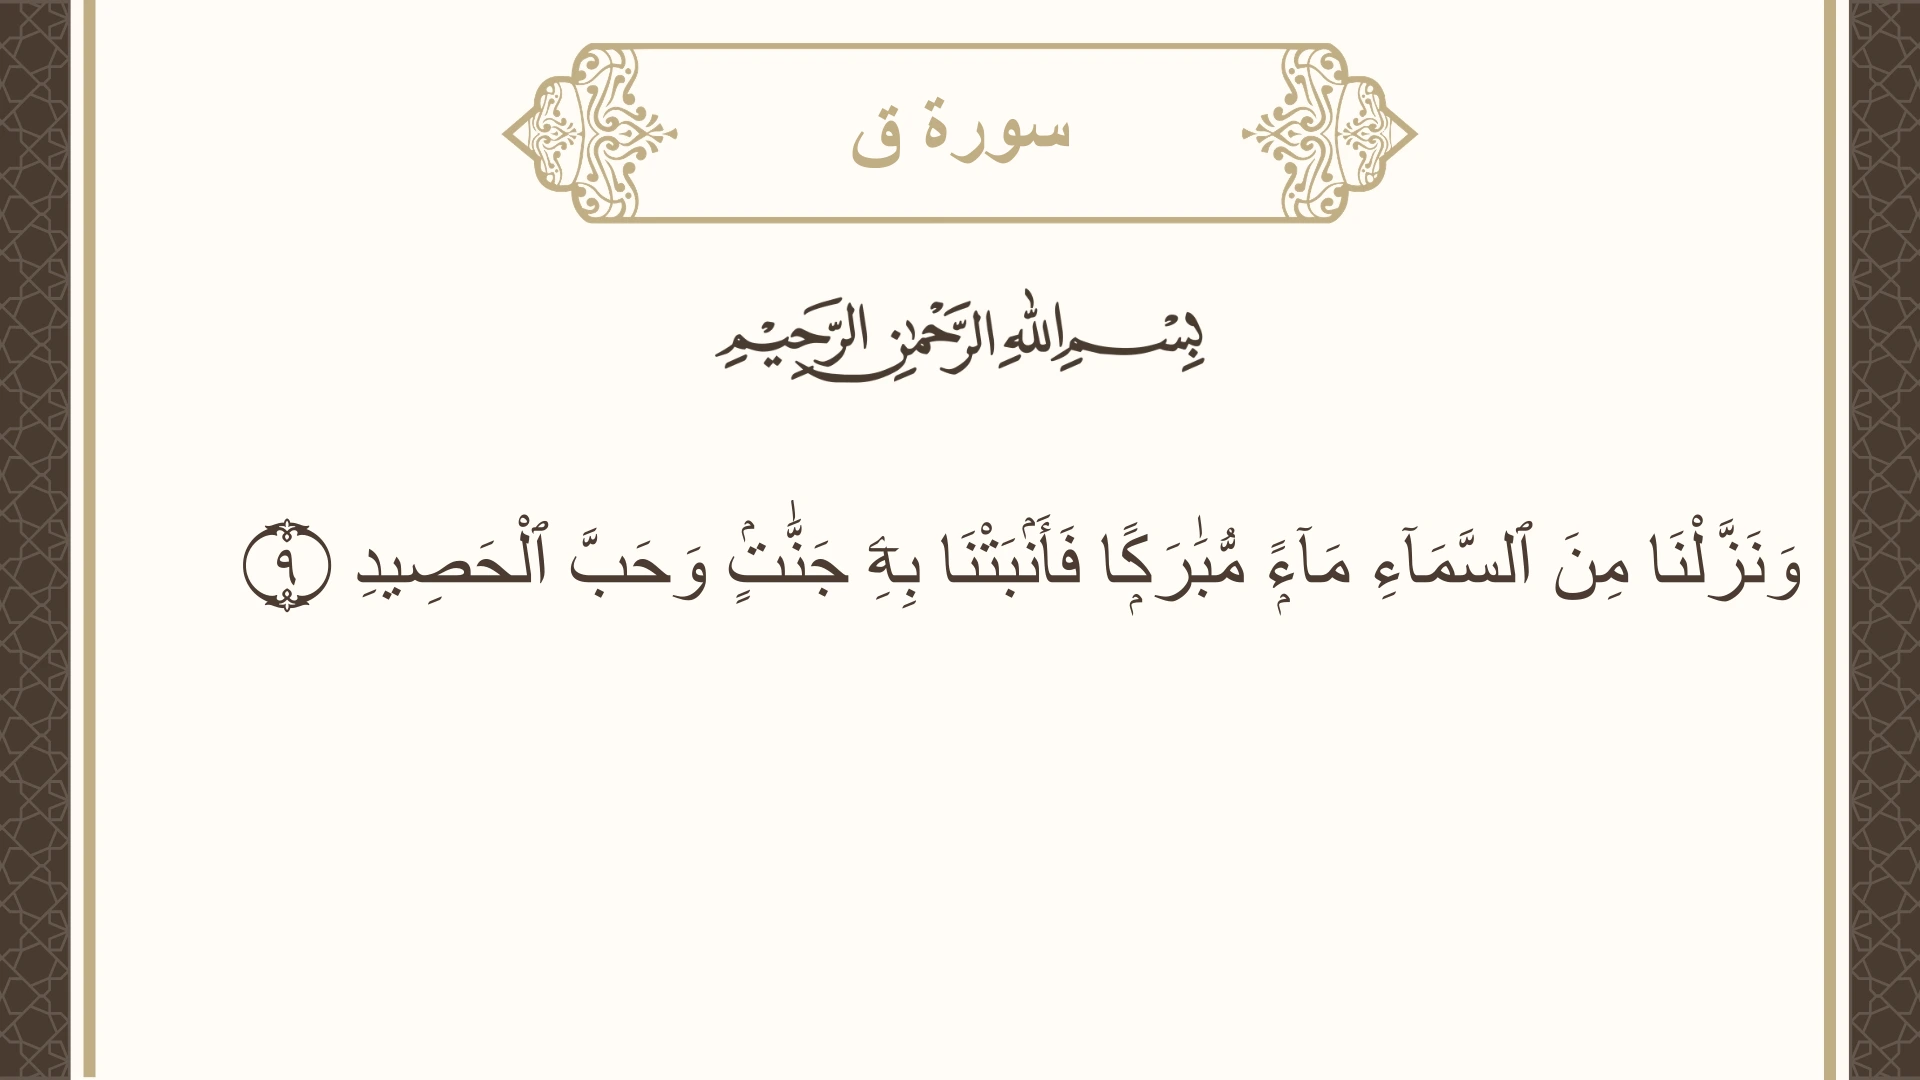 سورة ق
بِسْمِ اللهِ الرَّحْمٰنِ الرَّحِيْمِ
وَنَزَّلْنَا مِنَ ٱلسَّمَآءِ مَآءًۭ مُّبَٰرَكًۭا فَأَنۢبَتْنَا بِهِۦ جَنَّٰتٍۢ وَحَبَّ ٱلْحَصِيدِ ٩